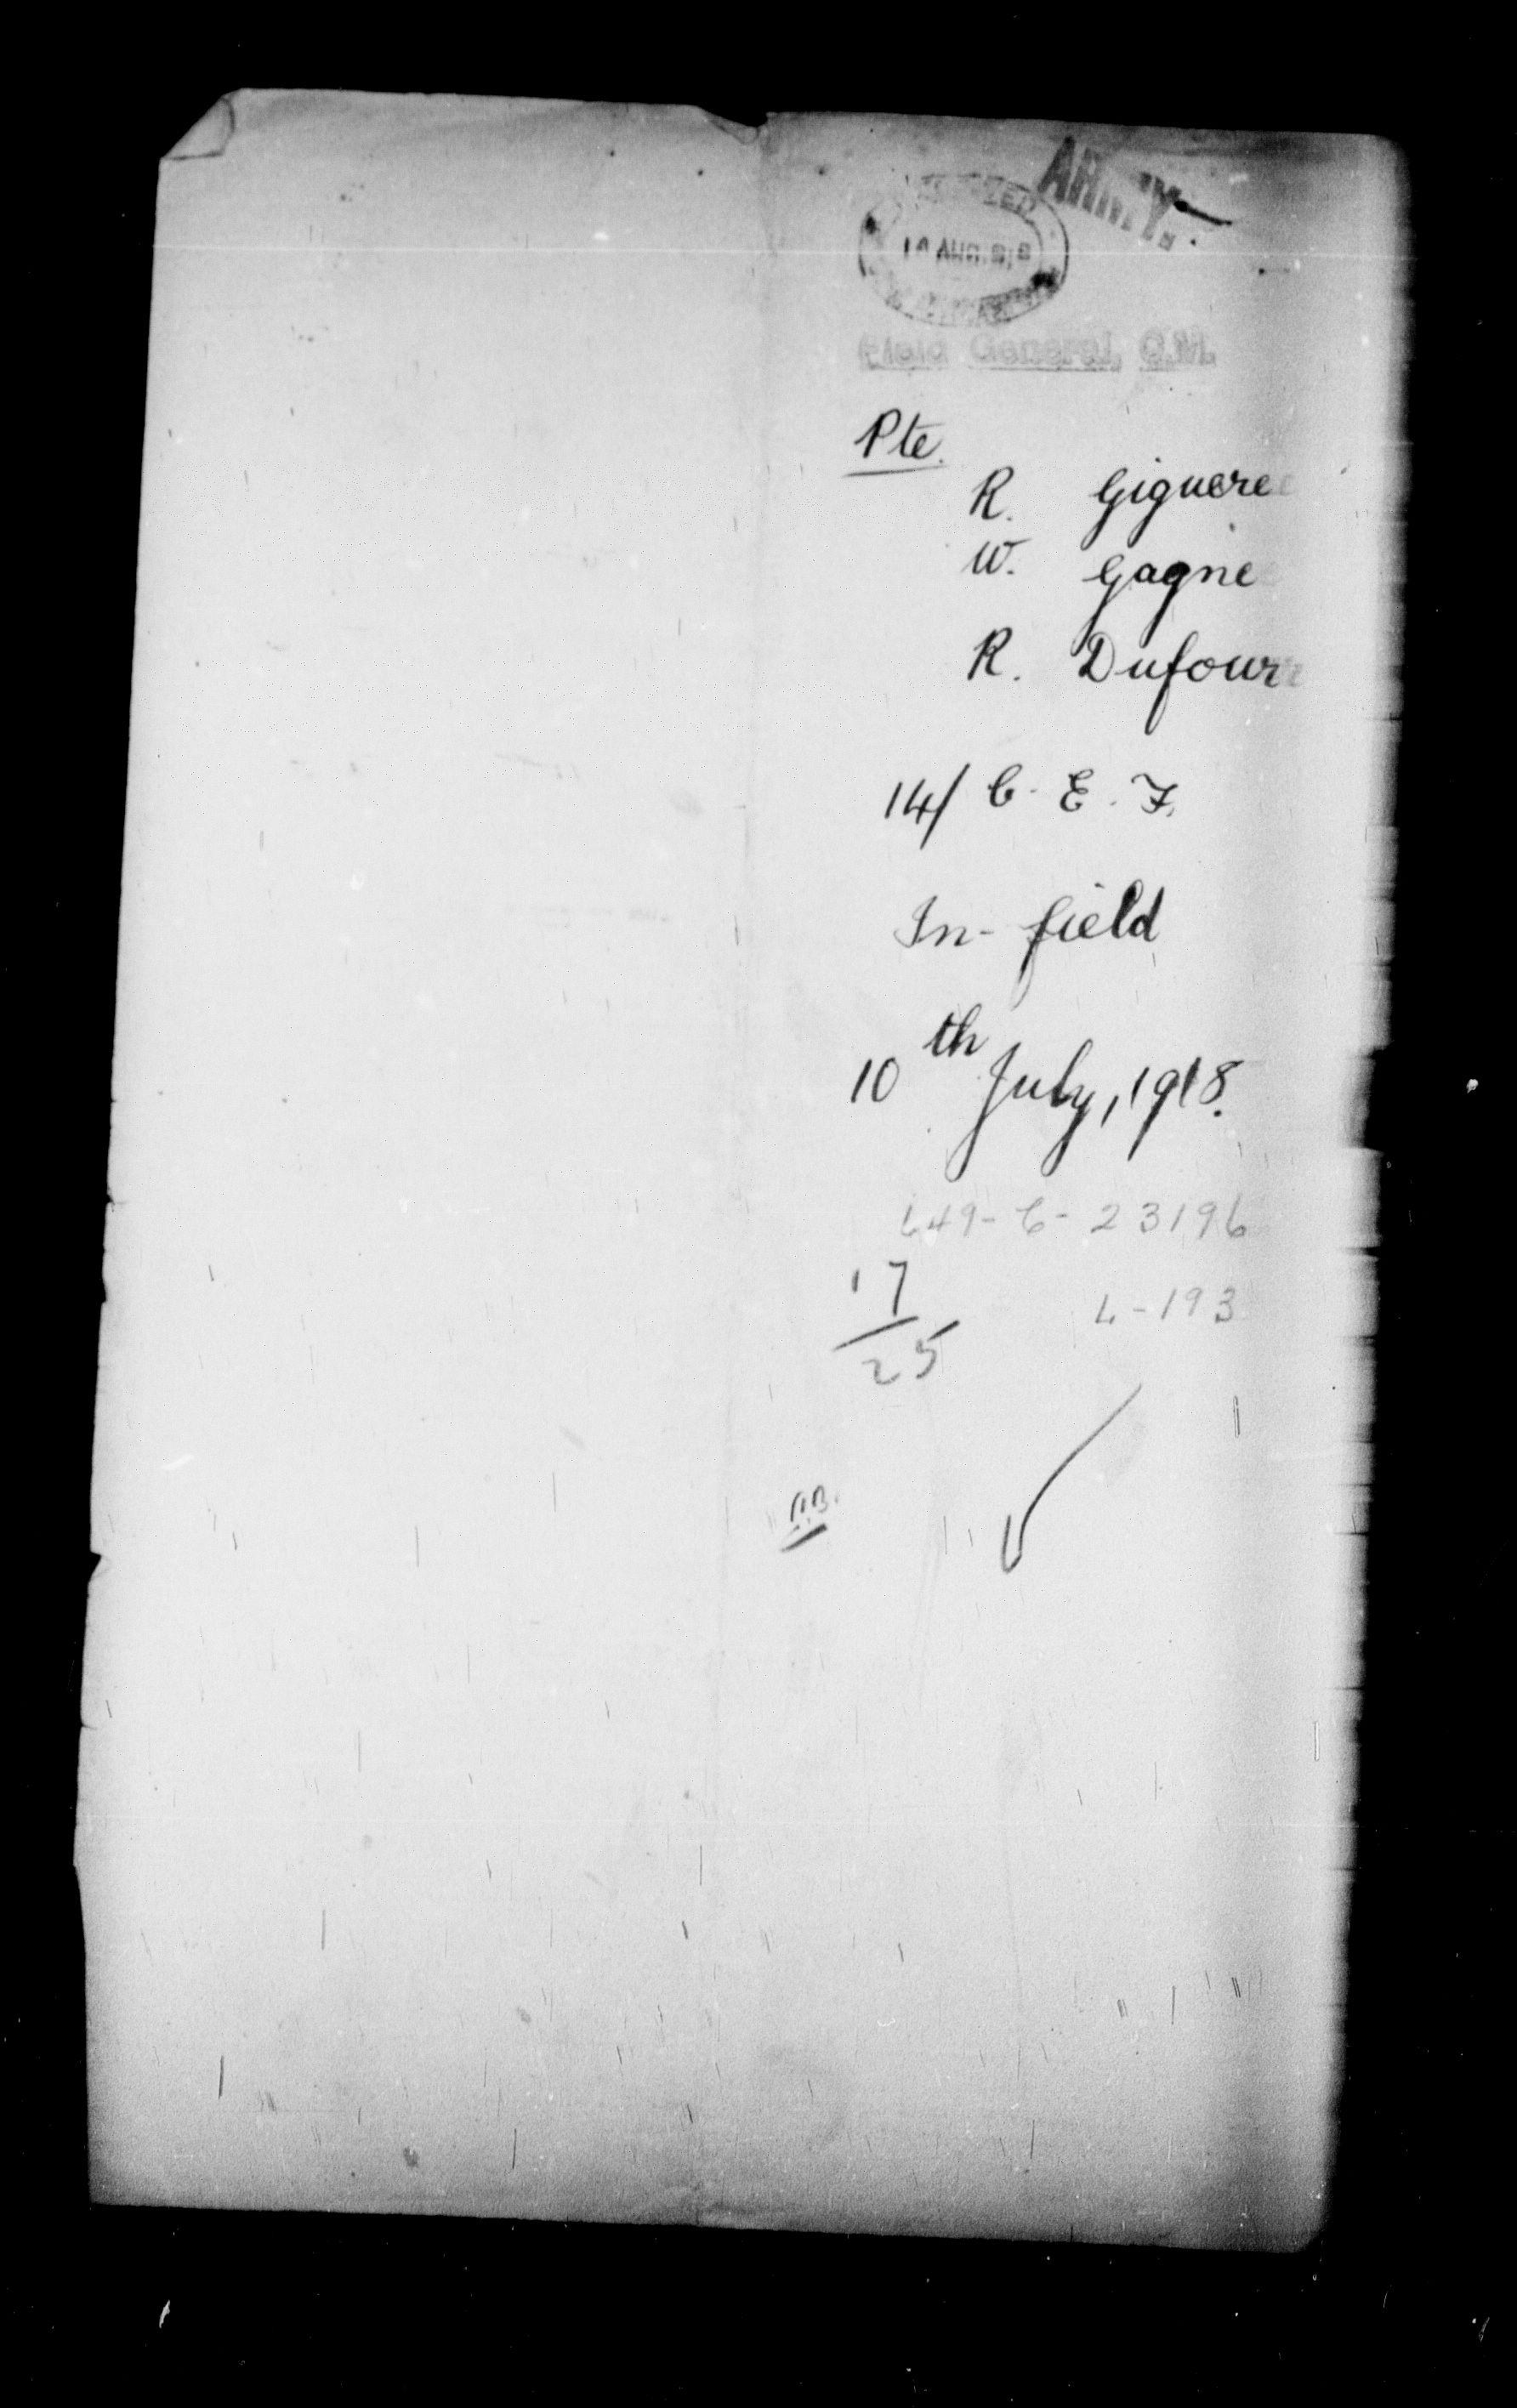 ARMY.
Field General, C.M.
Pte.
R. Giguere
W. Gagne
R. Dufour
14/ C. E. F.
In-field
10th July, 1918.
649-C-23196
17
L-193
25